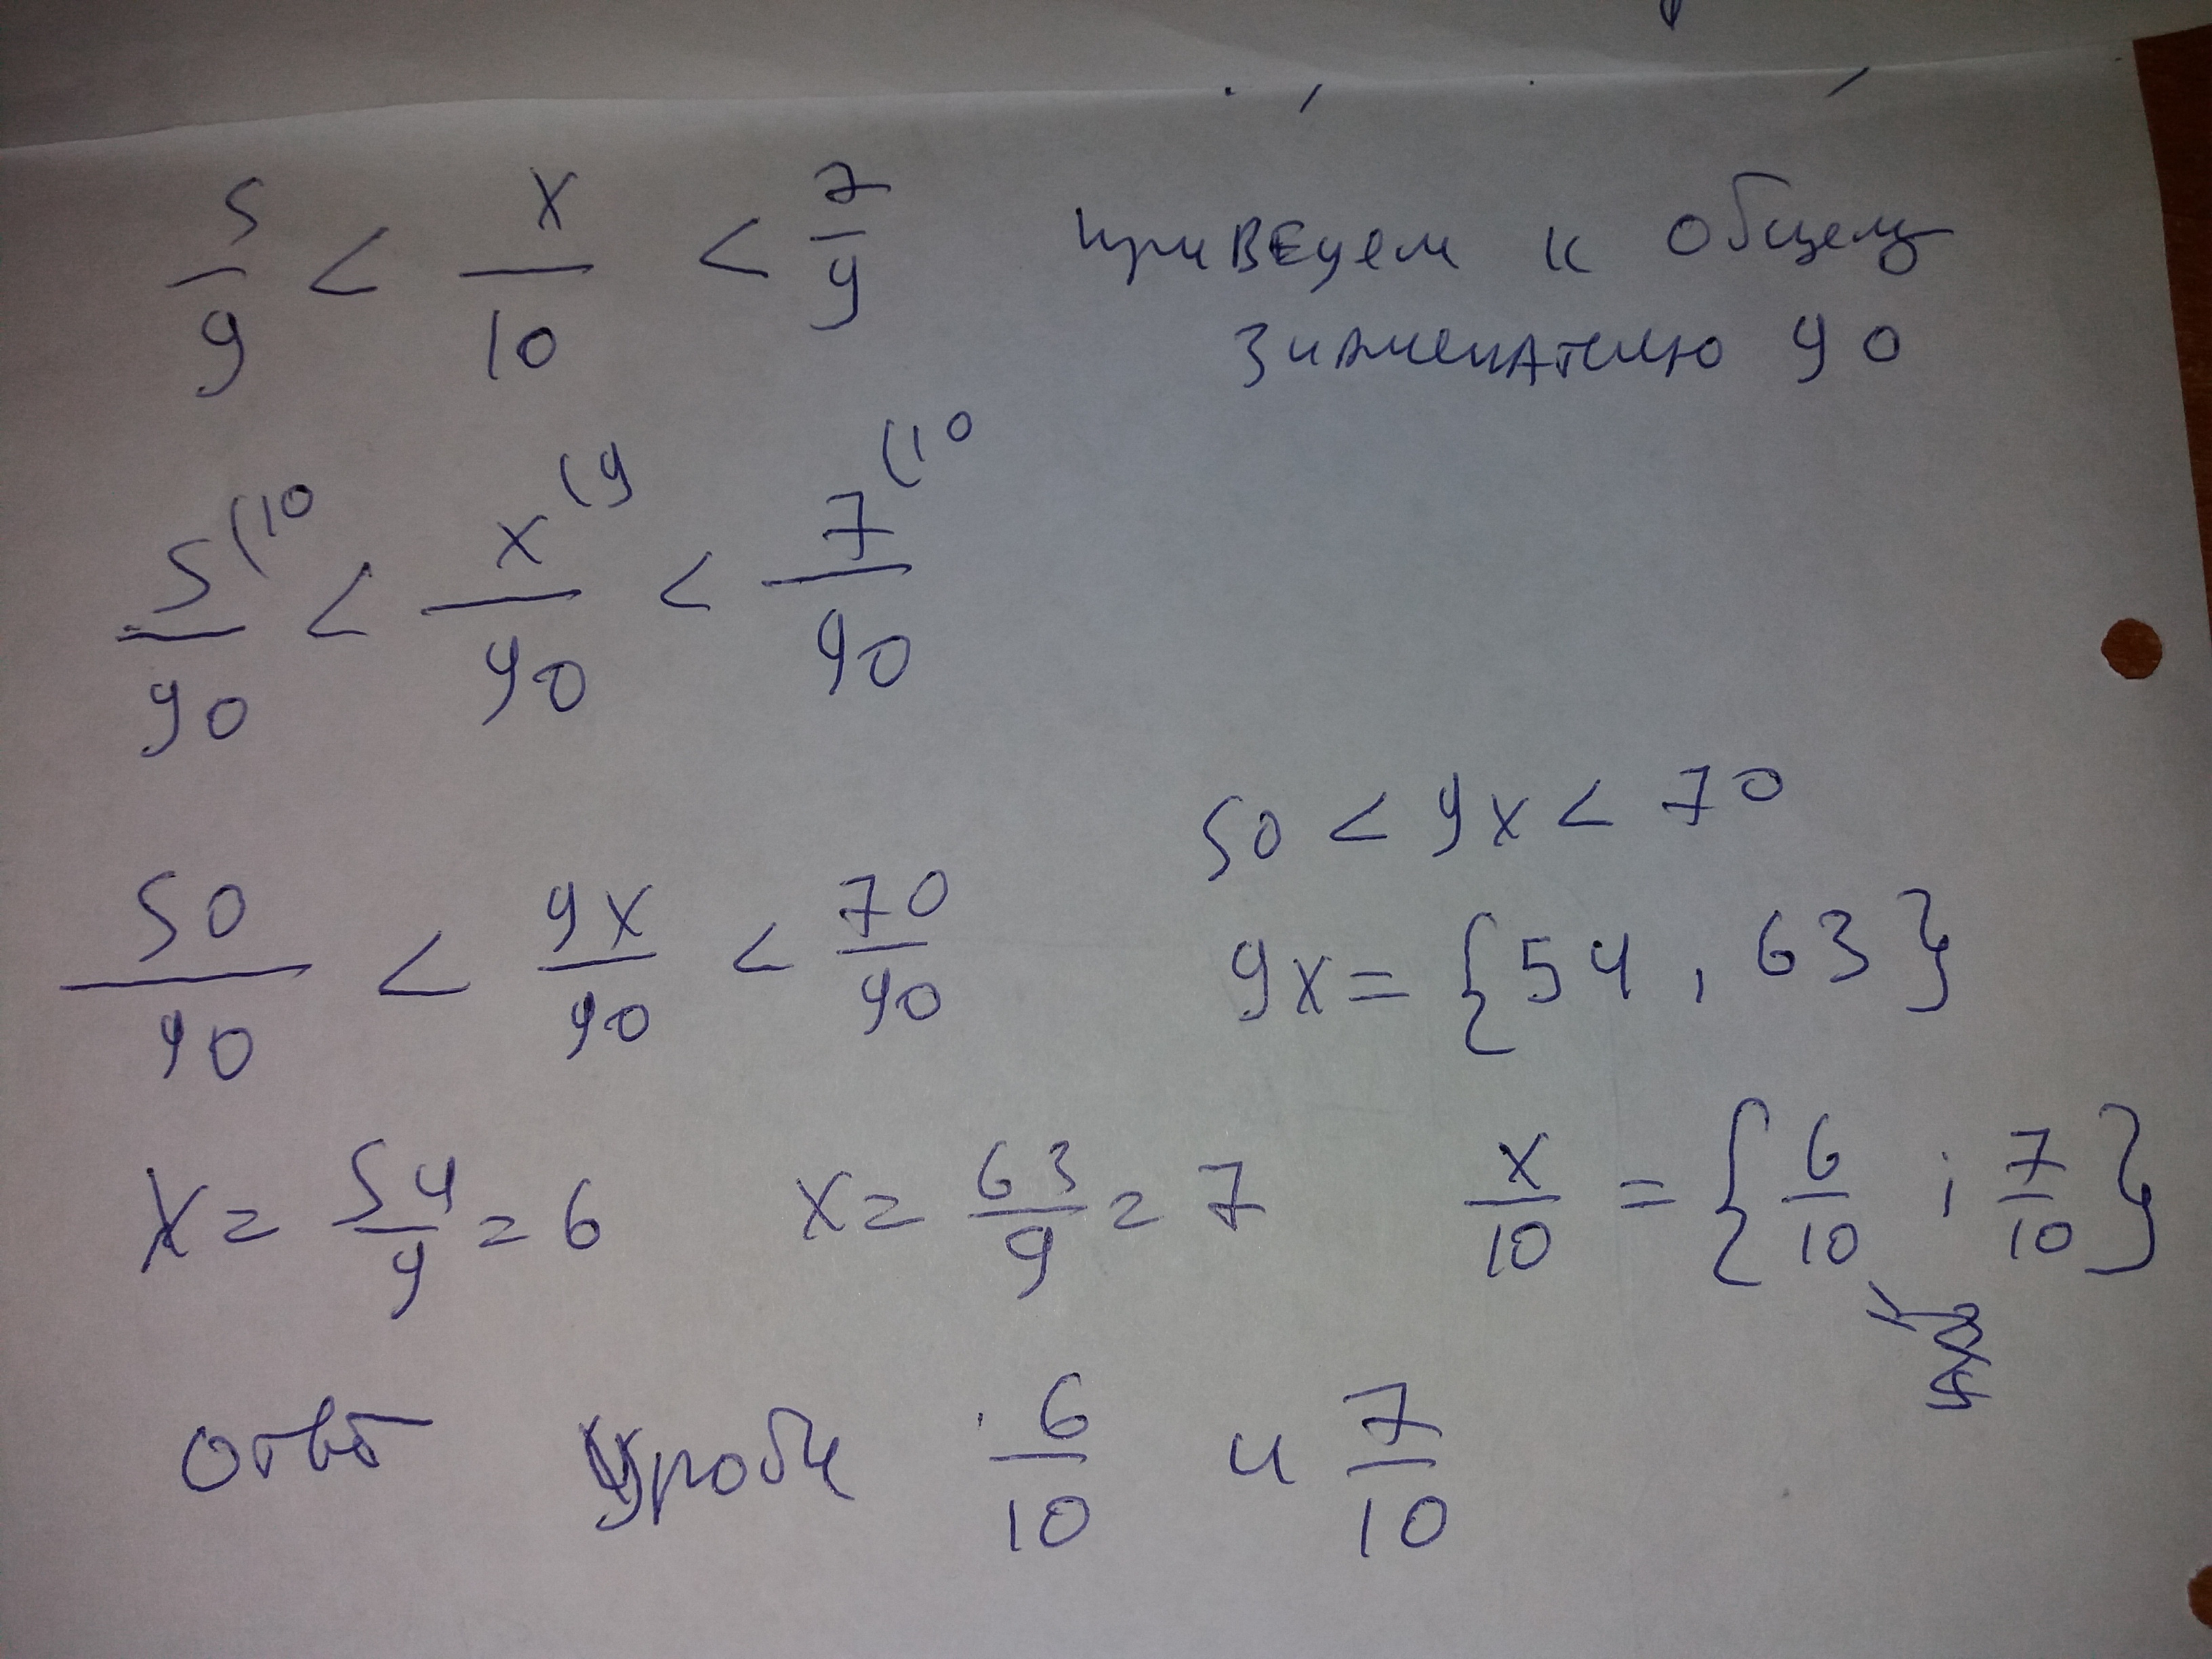 5/9 < x/10 < 7/9 приведем к общему
знаменателю 90
5(10/90 < x(9/90 < 7(10/90
50 < 9x < 70
50/90 < 9x/90 < 70/90
9x = {54, 63}
x = 54/9 = 6 x = 63/9 = 7 x/10 = {6/10 ; 7/10}
ответ дроби 6/10 и 7/10